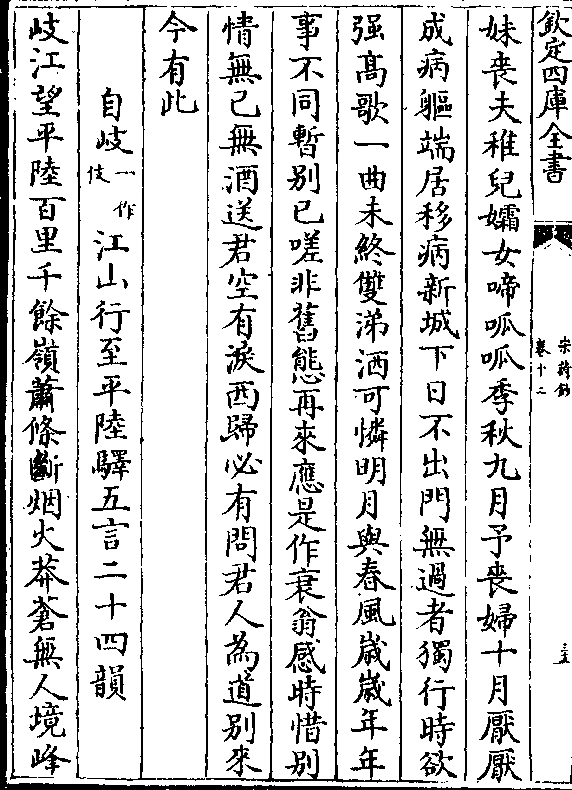 欽定四庫全書
宋詩鈔
卷十二
三五
妹喪夫稚兒孀女啼呱呱季秋九月予喪婦十月厭厭
成病軀端居移病新城下日不出門無過者獨行時欲
强高歌一曲未終雙涕洒可憐明月與春風歲歲年年
事不同暫别已嗟非舊態再來應是作衰翁感時惜别
情無已無酒送君空有淚西歸必有問君人為道别來
今有此
自岐一作伎江山行至平陸驛五言二十四韻
岐江望平陸百里千餘嶺蕭條斷烟火莽蒼無人境峰